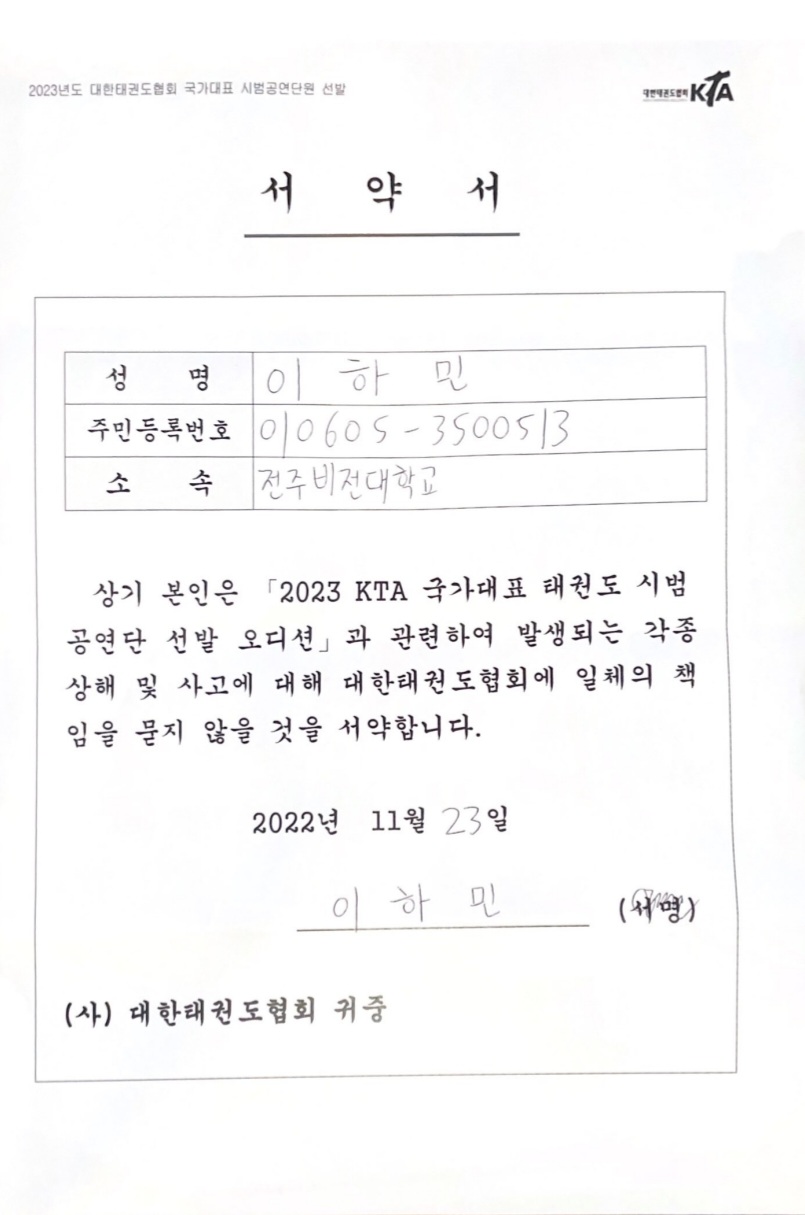 2023년도 대한태권도협회 국가대표 시범공연단원 선발
대한태권도협회 KTA
서 약 서
성 명 이 하 민
주민등록번호 010605-3500513
소 속 전주비전대학교
상기 본인은 「2023 KTA 국가대표 태권도 시범
공연단 선발 오디션」과 관련하여 발생되는 각종
상해 및 사고에 대해 대한태권도협회에 일체의 책
임을 묻지 않을 것을 서약합니다.
2022년 11월 23일
이 하 민 (서명)
(사) 대한태권도협회 귀중